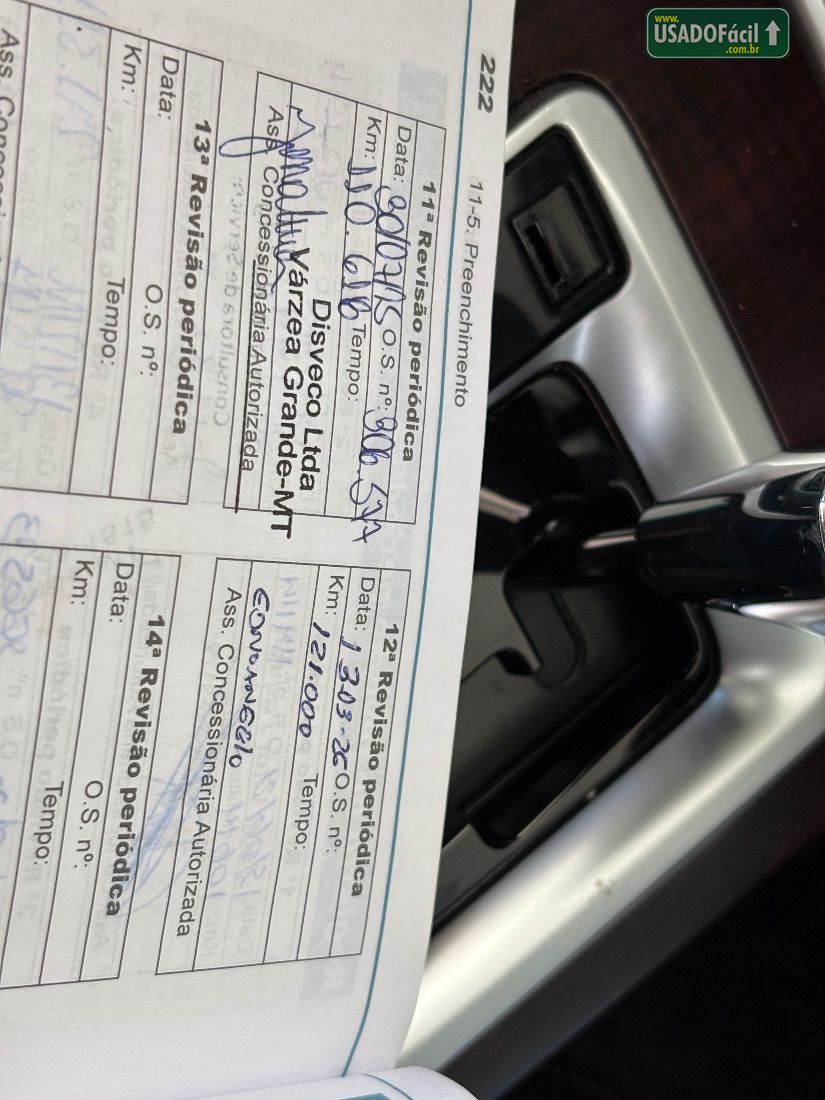 www.
USADOFácil
.com.br
222
11-5. Preenchimento
11ª Revisão periódica
Data: 30/07/25 O.S. nº: 306.577
Km: 110.618 Tempo:
Disveco Ltda
Várzea Grande-MT
Ass. Concessionária Autorizada
12ª Revisão periódica
Data: 13.03-26 O.S. nº:
Km: 121.000 Tempo:
Ass. Concessionária Autorizada
13ª Revisão periódica
Data: O.S. nº:
Km: Tempo:
14ª Revisão periódica
Data: O.S. nº:
Km: Tempo: